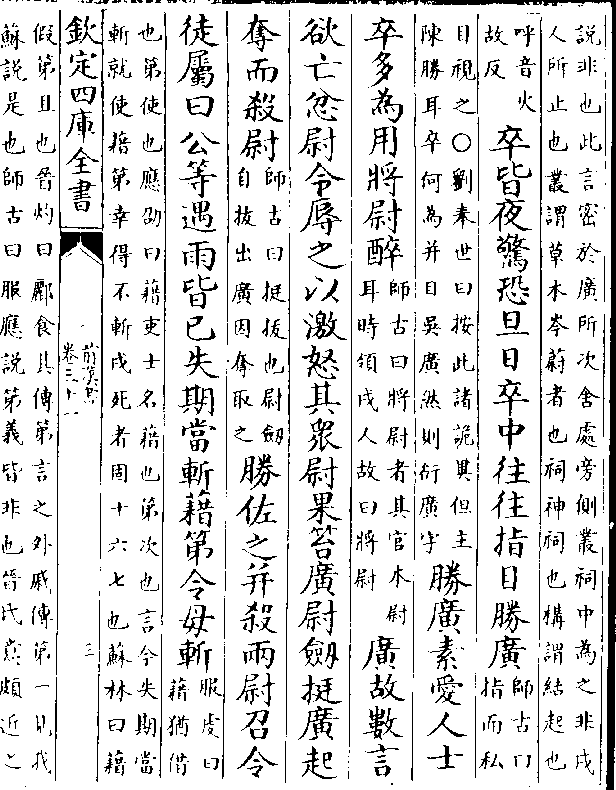 說非也此言密於廣所次舍處旁側叢祠中為之非戍
人所止也叢謂草木岑蔚者也祠神祠也構謂結起也
呼音火
故反
卒皆夜驚恐旦日卒中往往指目勝廣
師古曰
指而私
目視之○劉奉世曰按此諸詭異但主
陳勝耳卒何為并目吳廣然則衍廣字
勝廣素愛人士
卒多為用將尉醉
師古曰將尉者其官本尉
耳時領戍人故曰將尉
廣故數言
欲亡忿尉令辱之以激怒其衆尉果笞廣尉劒挺廣起
奪而殺尉
師古曰挺拔也尉劒
自拔出廣因奪取之
勝佐之并殺兩尉召令
徒屬曰公等遇雨皆已失期當斬藉第令毋斬
服虔曰
藉猶借
也第使也應劭曰藉吏士名藉也第次也言今失期當
斬就使藉第幸得不斬戍死者固十六七也蘇林曰藉
欽定四庫全書
前漢書
卷三十一
三
假第且也晉灼曰酈食其傳第言之外戚傳第一見我
蘇說是也師古曰服應說第義皆非也晉氏意頗近之